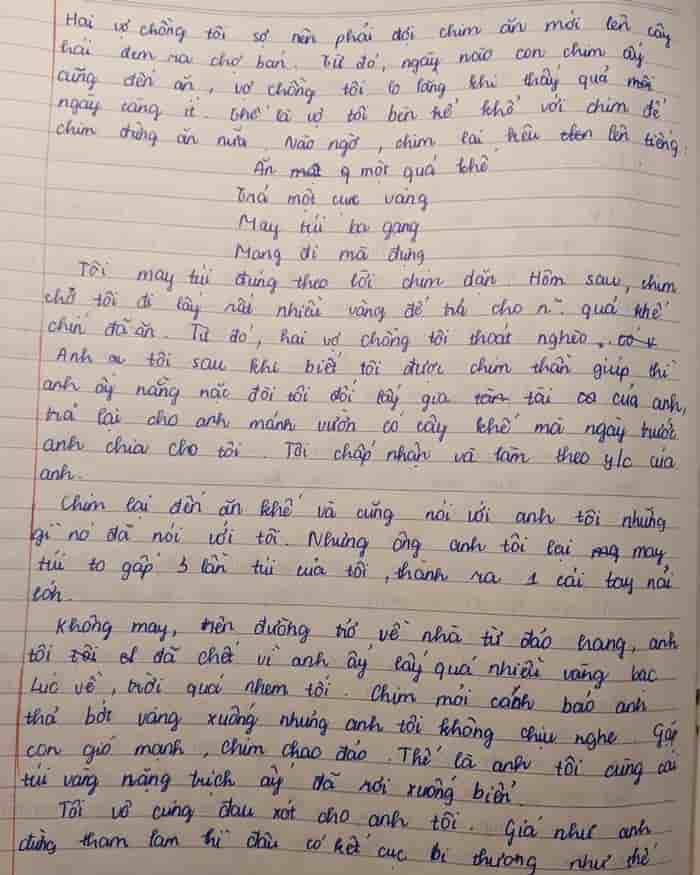 Hai vợ chồng tôi sợ nên phải đợi chim ăn mới lên cây
hái đem ra chợ bán. Từ đó, ngày nào con chim ấy
cũng đến ăn, vợ chồng tôi lo lắng khi thấy quả mỗi
ngày càng ít. Thế là vợ tôi bèn kể khổ với chim để
chim đừng ăn nữa. Nào ngờ, chim lại kêu lên tiếng:
Ăn một quả khế
Trả một cục vàng
May túi ba gang
Mang đi mà đựng
Tôi may túi đúng theo lời chim dặn. Hôm sau, chim
chở tôi đi lấy rất nhiều vàng để trả cho n~ quả khế
chim đã ăn. Từ đó, hai vợ chồng tôi thoát nghèo.
Anh tôi sau khi biết tôi được chim thần giúp thì
anh ấy nằng nặc đòi tôi đổi lấy gia tài của anh,
trả lại cho anh mảnh vườn có cây khế mà ngày trước
anh chia cho tôi. Tôi chấp nhận và làm theo y/c của
anh.
Chim lại đến ăn khế và cũng nói với anh tôi những
gì nó đã nói với tôi. Nhưng ông anh tôi lại may
túi to gấp 3 lần túi của tôi, thành ra 1 cái tay nải
lớn.
Không may, trên đường trở về nhà từ đảo hang, anh
tôi đã chết vì anh ấy lấy quá nhiều vàng bạc
Lúc về, trời quá nhem tối. Chim mới cảnh báo anh
thả bớt vàng xuống nhưng anh tôi không chịu nghe. Gặp
cơn gió mạnh, chim chao đảo. Thế là anh tôi cùng cái
túi vàng nặng trịch ấy đã rơi xuống biển.
Tôi vô cùng đau xót cho anh tôi. Giá như anh
đừng tham lam thì đâu có kết cục bi thương như thế